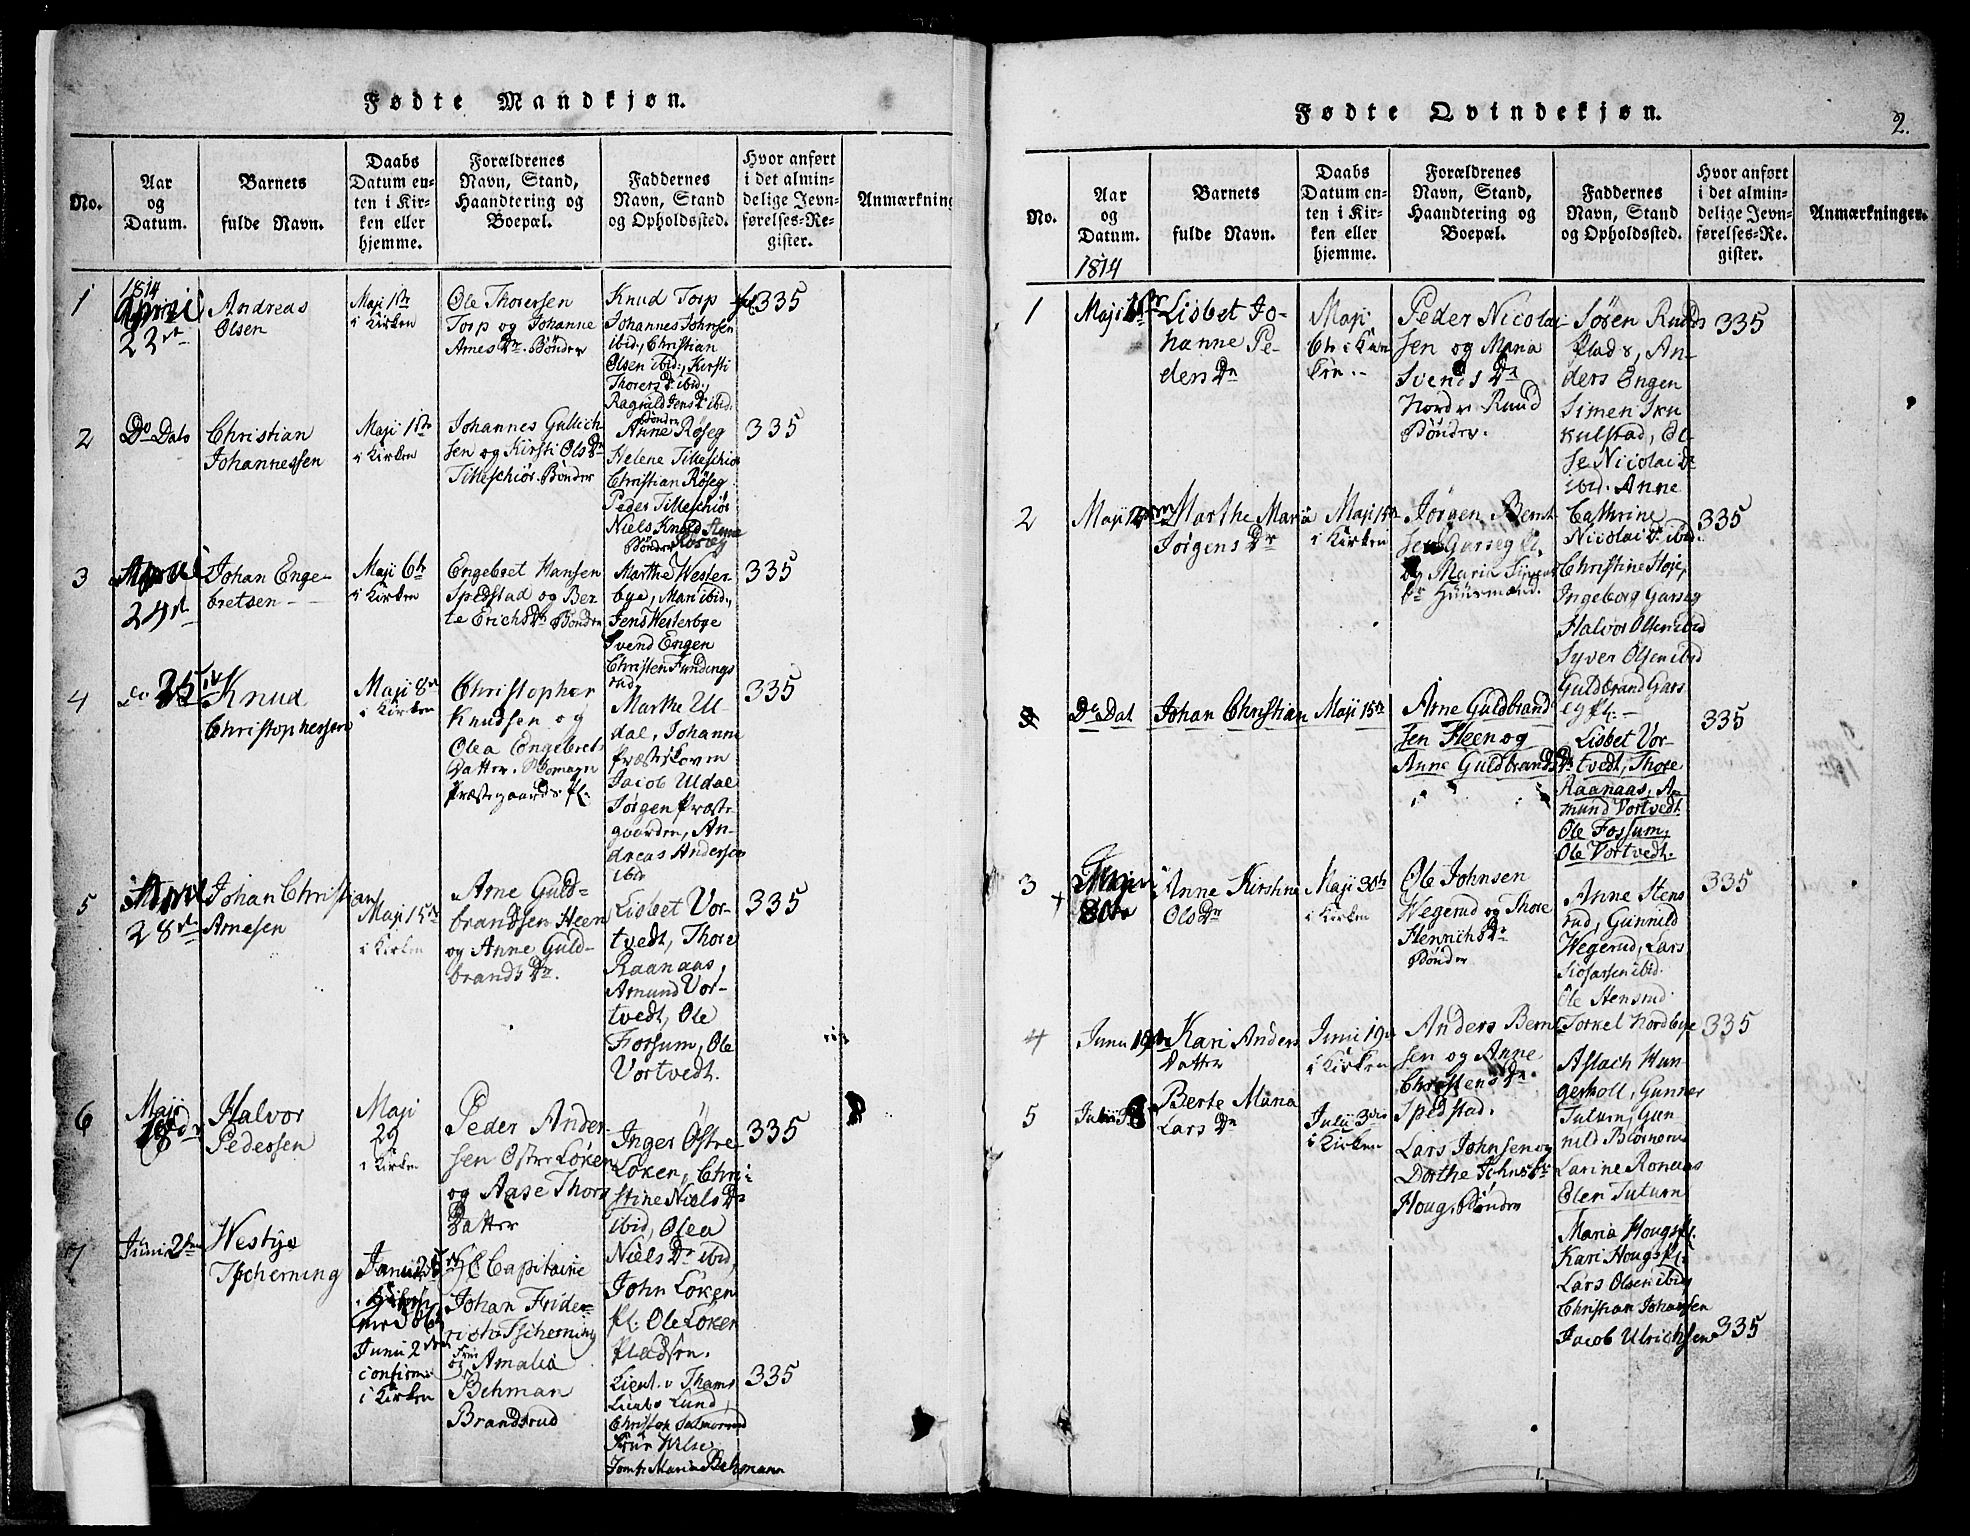 Fødte Mandkjøn.
No.
Aar
og
Datum.
Barnets
fulde Navn.
Daabs
Datum en-
ten i Kir-
ken eller
hjemme.
Forældrenes
Navn, Stand,
Haandtering og
Boepæl.
Faddernes
Navn, Stand
og Opholdssted.
Hvor anført
i det almin-
delige Jevn-
førelses-Re-
gister.
Anmærkning
1
1814
April
22de
Andreas
Olsen
Maji 1ste
i Kirken
Ole Thorersen
Torp og Johanne
Arnes Dr. Bønder
Knud Torp
Johannes Johnsen
ibid., Christian
Olsen ibid., Kirsti
Thorers D ibid.,
Ragnild Jens D ibid.
Bønder
335
2
Do Dato
Christian
Johannessen
Maji 1ste
i Kirken
Johannes Gullich
sen og Kirsti Ols Dr
Titteschiør. Bønder
Anne Røseg
Helene Titteschiør
Christian Røseg
Peder Titteschiør
Niels Knold
Bønder
335
3
April
24de
Johan Enge-
bretsen
Maji 6te
i Kirken
Engebret Hansen
Spedstad og Ber
te Erichs Dr Bønder
Marthe Wester
bye, Mari ibid.,
Jens Westerbye
Svend Engen
Christen Fundings
rud
335
4
do 25
Knud
Christophersen
Maji 8de
i Kirken
Christopher
Knudsen og
Olea Engebret
Datter. Romagn
Præstegaards Pl:
Marthe Ul
dal, Johanne
Præsteskoven
Jacob Uldal
Jørgen Præste
gaarden, An-
dreas Andersen
ibid
335
5
April
28de
Johan Christian
Arnesen
Maji 15de
i Kirken
Arne Guld-
brandsen Heen
og Anne Guld-
brands Dr.
Lisbet Vor-
tvedt, Thore
Raanaas,
Amund Vor-
tvedt, Ole
Fossum, Ole
Vortvedt.
335
6
Maji
18de
Halvor
Pedersen
Maji
29
i Kirken
Peder Ander-
sen Østre Løken
og Aase Thors
Datter
Inger Østre
Løken, Chri-
stine Niels Dr
ibid, Olea
Niels Dr ibid,
John Løken
Pl: Ole Løken
Pladsen.
335
7
Juni 2den
Westye
Tscherning
Junii 2den
confirm
i Kirken
Capitaine
Johan Frider
rich Tscherning
og Frue Amalia
Behman
Brandsrud
Lieut. v Thams
Lieut. Lund,
Frue Wilse
Jomf: Maria Behmann
335
Fødte Qvindekjøn.
2.
No.
Aar
og
Datum.
1814
Barnets
fulde Navn.
Daabs
Datum en-
ten i Kir-
ken eller
hjemme.
Forældrenes
Navn, Stand,
Haandtering og
Boepæl.
Faddernes
Navn, Stand
og Opholdssted.
Hvor anført
i det almin-
delige Jevn-
førelses-Re-
gister.
Anmærkninger.
1
Maji
Lisbet Jo-
hanne Pe-
ders Dr
Maji
6te i Kir
ken
Peder Nicolai
sen og Maria
Svends Dr
Nordre Ruud
Bønder.
Søren Ruuds
Plads, An-
ders Engen
Simen Sku
kulstad, El-
se Nicolai Dr
ibid. Anne
Cathrine
Nicolai D ibid.
335
2
Maji
Marthe Maria
Jørgens Dr
Maji 15de
i Kirken
Jørgen Bernt
sen Garseg Pl.
og Maria
Huusmand.
Christine Høje,
Ingeborg Garseg
Halvor Olsen ibid
Syver Olsen ibid
Guldbrand Gars
eg Pl.
335
3
Do Dat
Johan Christian
Maji 15de
Arne Guldbrand
sen Heen og
Anne Guldbrands Dr
Lisbet Vor-
tvedt, Thore
Raanaas, A-
mund Vortvedt
Ole Fossum,
Ole Vortvedt.
335
3
Maji
Anne Kirstine
Ols Dr
Maji 30te
i Kirken
Ole Johnsen
Wegerud og Thore
Henrichs Dr
Bønder
Anne Stens
rud, Gunnild
Wegerud, Lars
ibid.
Ole Stensrud
335
4
Junii 19de
Kari Anders
Datter
Junii 19de
i Kirken
Anders Bernt
sen og Anne
Christens Dr.
Spedstad.
Torkel Nordbye
Aslach Hun
gerholt, Gunner
Tuturn, Gun
nild Blomerud
Larine Ronaas
Eden Tuturn
335
5
Julii 3
Berte Maria
Lars Dr
Julii 3die
i Kirken
Lars Johnsen og
Dorthe Johns Dr
Houg, Bønder
Maria Hougs Pl.
Kari Hougs Pl:
Lars Olsen ibid
Christian Johansen
Jacob Ulrichsen
335